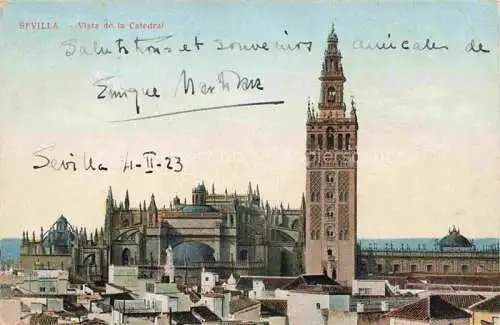 SEVILLA. - Vista de la Catedral
Salutations et souvenirs amicales de
Enrique Martinez
Sevilla 4-II-23